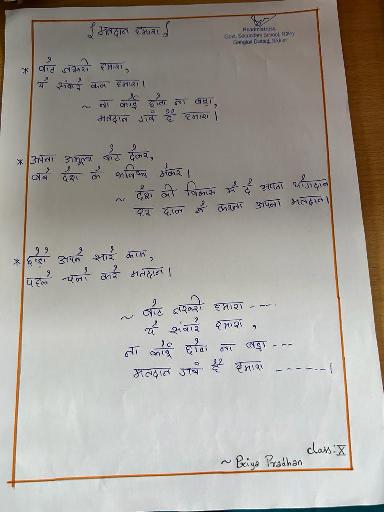 { मतदान हमारा }
Headmistress
Govt. Secondary School,
Gangtok District, Sikkim
* वोट जरूरी हमारा,
ये संवारे कल हमारा।
~ ना कोई छोटा ना बड़ा,
मतदान गर्व है हमारा।
* अपना अमूल्य वोट देकर,
बने देश के भविष्य मेकर।
~ देश की विकास में दे अपना योगदान
हर हाल में करना अपना मतदान।
* छोड़ो अपने सारे काम,
पहले चलो करें मतदान।
~ वोट जरूरी हमारा ----
ये संवारे हमारा,
ना कोई छोटा ना बड़ा ---
मतदान गर्व है हमारा ------।
class: X
~ Priya Pradhan